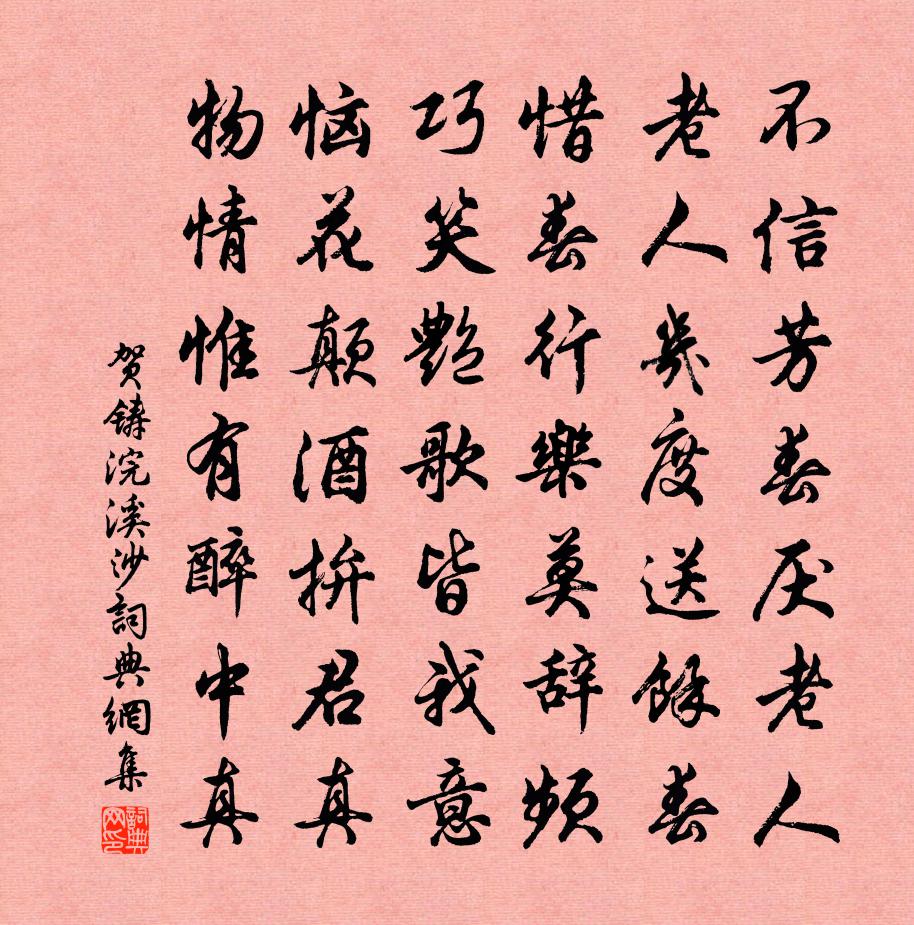 不信芳春厌老人
老人几度送餘春
惜春行樂莫辞频
巧笑艷歌皆我意
恼花颠酒拚君真
物情惟有醉中真
贺铸浣溪沙詞典網集
詞典网印